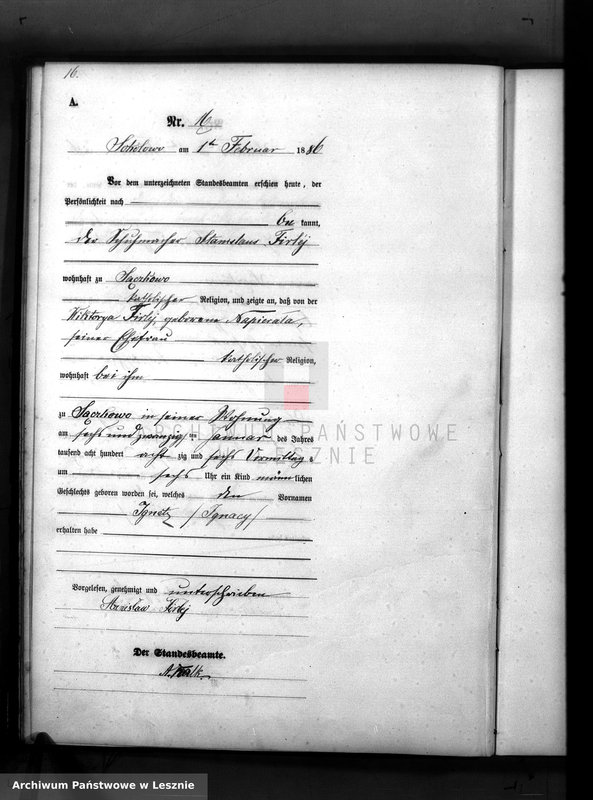 16.
A.
Nr.
Sokolowo am 1ten Februar 1886
Vor dem unterzeichneten Standesbeamten erschien heute, der
Persönlichkeit nach
be kannt,
der Schuhmacher Stanislaus Firlej
wohnhaft zu Sączkowo
katholischer Religion, und zeigte an, daß von der
Wiktorya Firlej, geborene Napierala,
seiner Ehefrau
katholischer Religion,
wohnhaft bei ihm
zu Sączkowo in seiner Wohnung
am sechs und zwanzigten Januar des Jahres
tausend acht hundert acht zig und sechs Vormittag
um sechs Uhr ein Kind männlichen
Geschlechts geboren worden sei, welches den Vornamen
Ignatz /Ignacy/
erhalten habe
Vorgelesen, genehmigt und unterschrieben
Stanislaw Firlej
Der Standesbeamte.
ARCHIWUM PAŃSTWOWE
W LESZNIE
Archiwum Państwowe w Lesznie